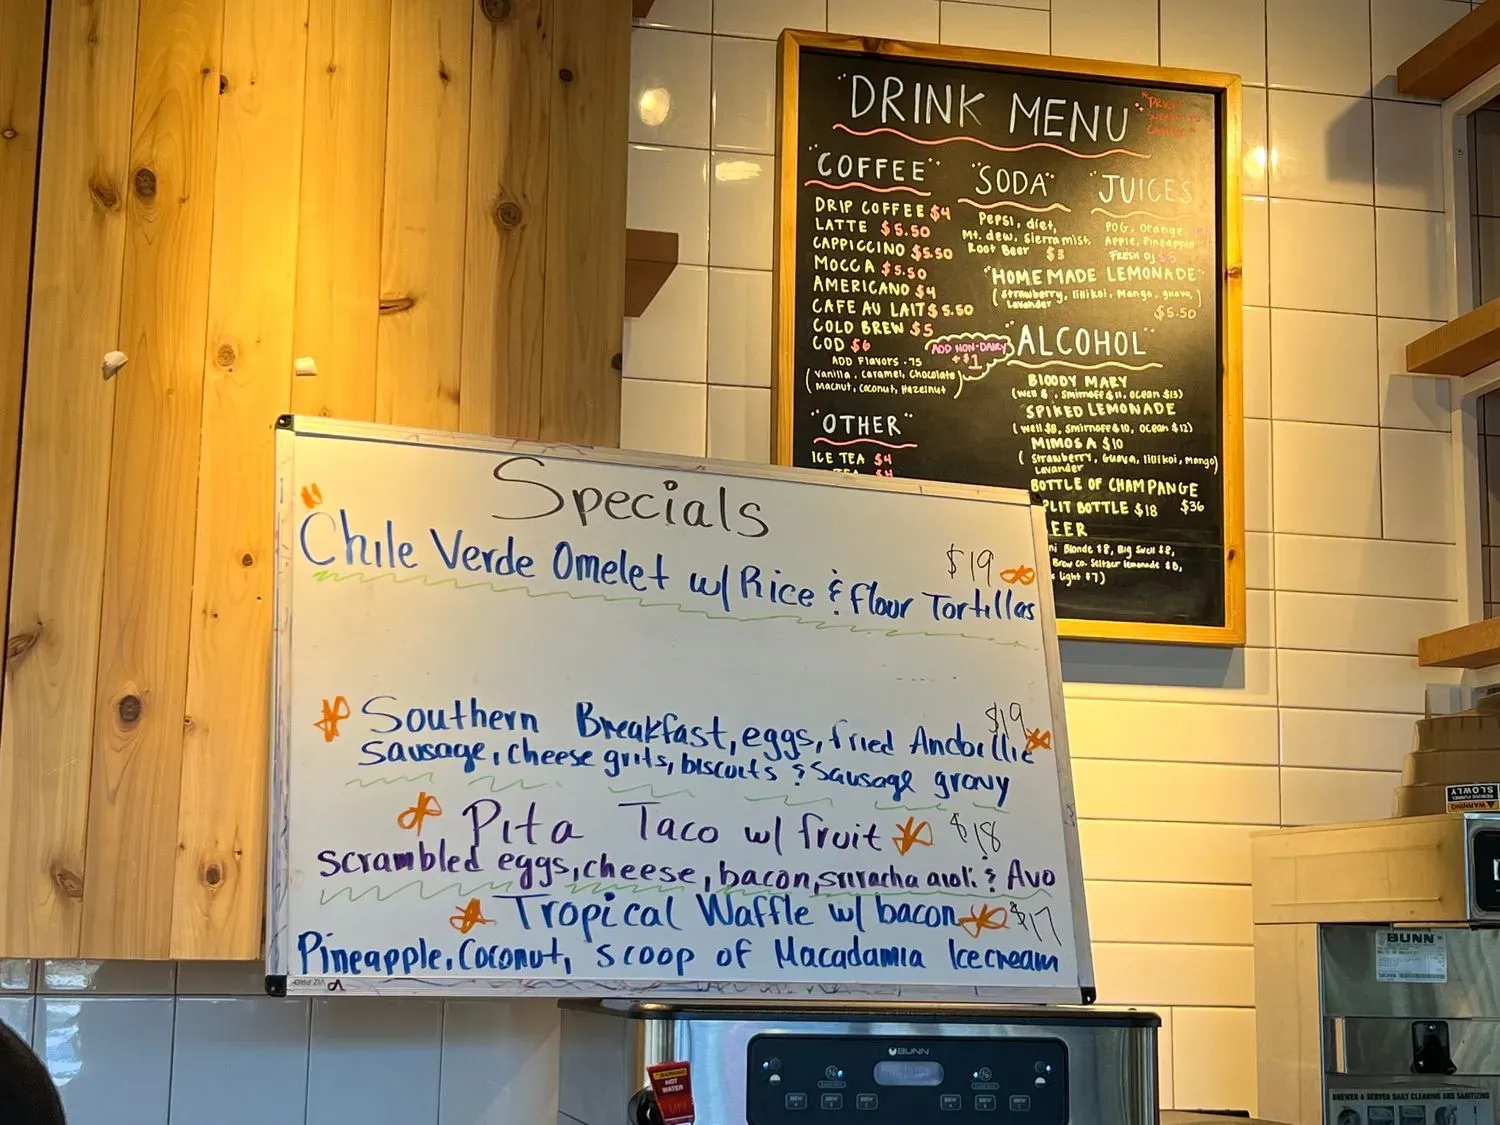 "DRINK MENU"
"COFFEE"
DRIP COFFEE $4
LATTE $5.50
CAPPICCINO $5.50
MOCCA $5.50
AMERICANO $4
CAFE AU LAIT $5.50
COLD BREW $5
COD $6
ADD Flavors .75
(Vanilla, Caramel, Chocolate
Macnut, Coconut, Hazelnut)
ADD NON-DAIRY
+$1
"OTHER"
ICE TEA $4
TEA $4
"SODA"
Pepsi, diet,
Mt. dew, sierra mist,
Root Beer $3
"JUICES"
POG, Orange,
Apple, Pineapple
FRESH OJ $5
"HOMEMADE LEMONADE"
(Strawberry, lilikoi, Mango, guava,
Lavander)
$5.50
"ALCOHOL"
BLOODY MARY
(well $, Smirnoff $11, Ocean $13)
SPIKED LEMONADE
(well $8, Smirnoff $10, Ocean $12)
MIMOSA $10
(Strawberry, Guava, lilikoi, Mango)
Lavander
BOTTLE OF CHAMPANGE
$36
PLIT BOTTLE $18
EER
ni Blonde $8, Big Swell $8,
Brew Co. Seltzer lemonade $8,
light $7)
Specials
Chile Verde Omelet w/ Rice & flour Tortillas
$19
Southern Breakfast, eggs, fried Andoillie
$19
Sausage, cheese grits, biscuits & sausage gravy
Pita Taco w/ fruit $18
scrambled eggs, cheese, bacon, sriracha aioli & Avo
Tropical Waffle w/ bacon $17
Pineapple, Coconut, scoop of Macadamia Icecream
VIZ-PRO
BUNN
BREW
BREW
BREW
BREW
BREW
BREW
WARNING
HOT
WATER
WARNING
REMOVE FUNNEL
SLOWLY
BUNN
BREWER & SERVER DAILY CLEANING AND SANITIZING